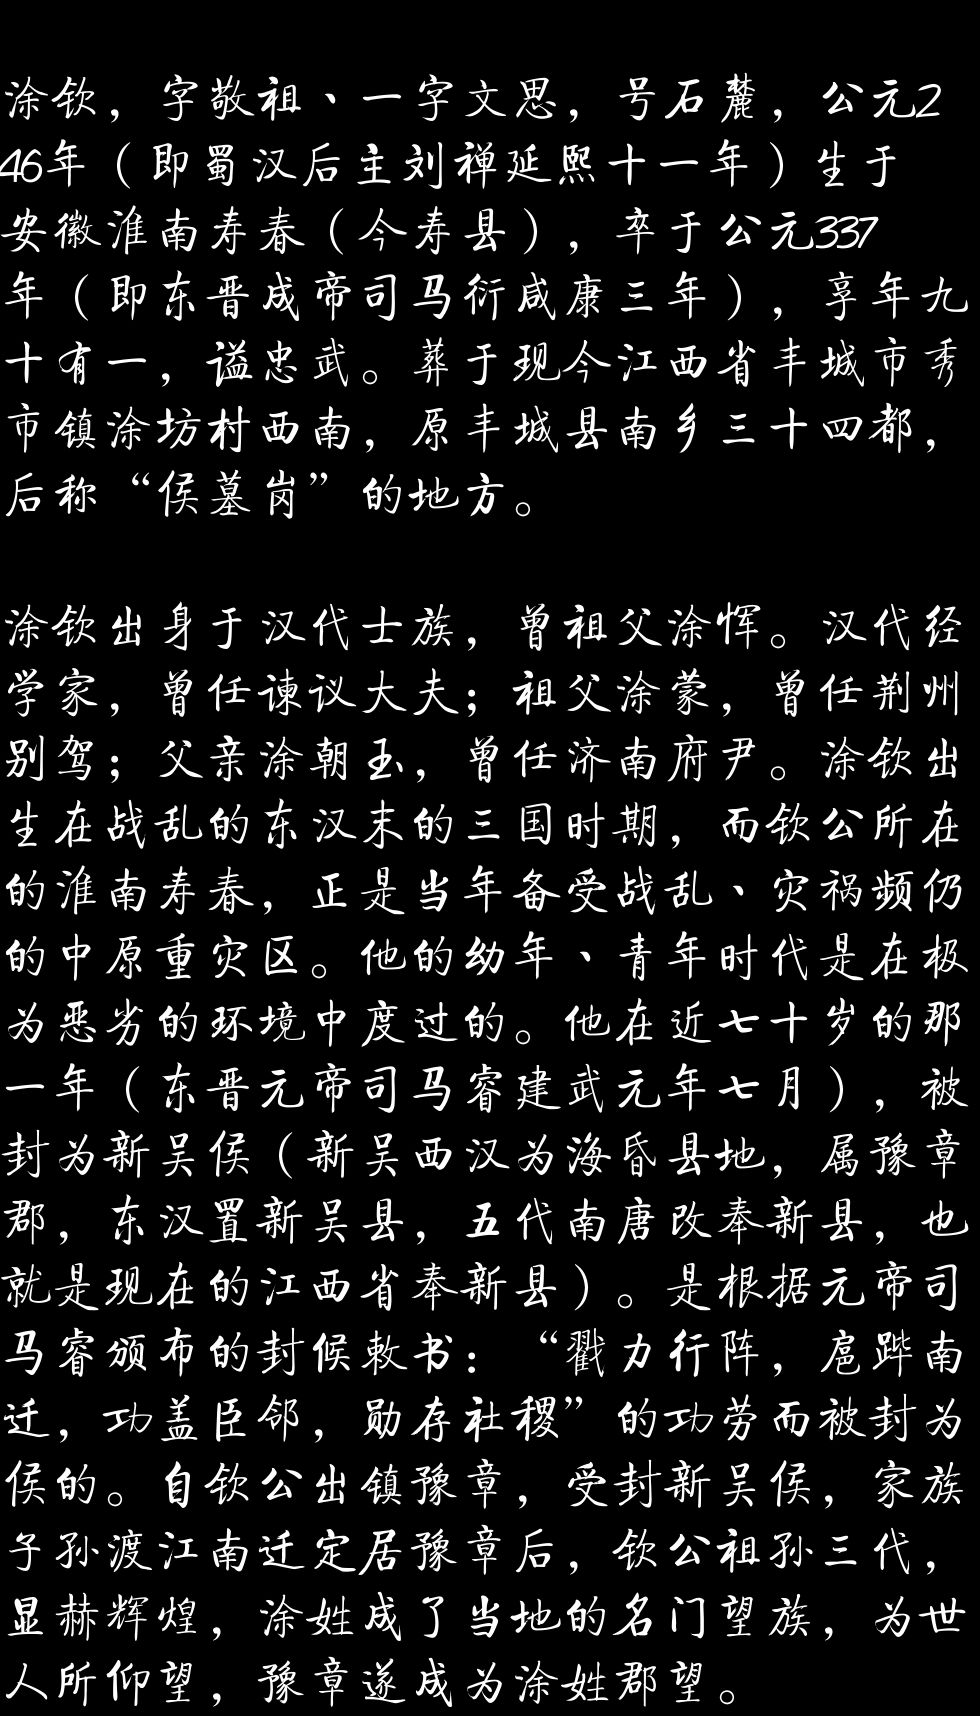 涂钦，字敬祖、一字文思，号石麓，公元2
46年（即蜀汉后主刘禅延熙十一年）生于
安徽淮南寿春（今寿县），卒于公元337
年（即东晋成帝司马衍咸康三年），享年九
十有一，谥忠武。葬于现今江西省丰城市秀
市镇涂坊村西南，原丰城县南乡三十四都，
后称“侯墓岗”的地方。
涂钦出身于汉代士族，曾祖父涂恽。汉代经
学家，曾任谏议大夫；祖父涂蒙，曾任荆州
别驾；父亲涂朝玉，曾任济南府尹。涂钦出
生在战乱的东汉末的三国时期，而钦公所在
的淮南寿春，正是当年备受战乱、灾祸频仍
的中原重灾区。他的幼年、青年时代是在极
为恶劣的环境中度过的。他在近七十岁的那
一年（东晋元帝司马睿建武元年七月），被
封为新吴侯（新吴西汉为海昏县地，属豫章
郡，东汉置新吴县，五代南唐改奉新县，也
就是现在的江西省奉新县）。是根据元帝司
马睿颁布的封候敕书：“戮力行阵，扈跸南
迁，功盖臣邻，勋存社稷”的功劳而被封为
侯的。自钦公出镇豫章，受封新吴侯，家族
子孙渡江南迁定居豫章后，钦公祖孙三代，
显赫辉煌，涂姓成了当地的名门望族，为世
人所仰望，豫章遂成为涂姓郡望。